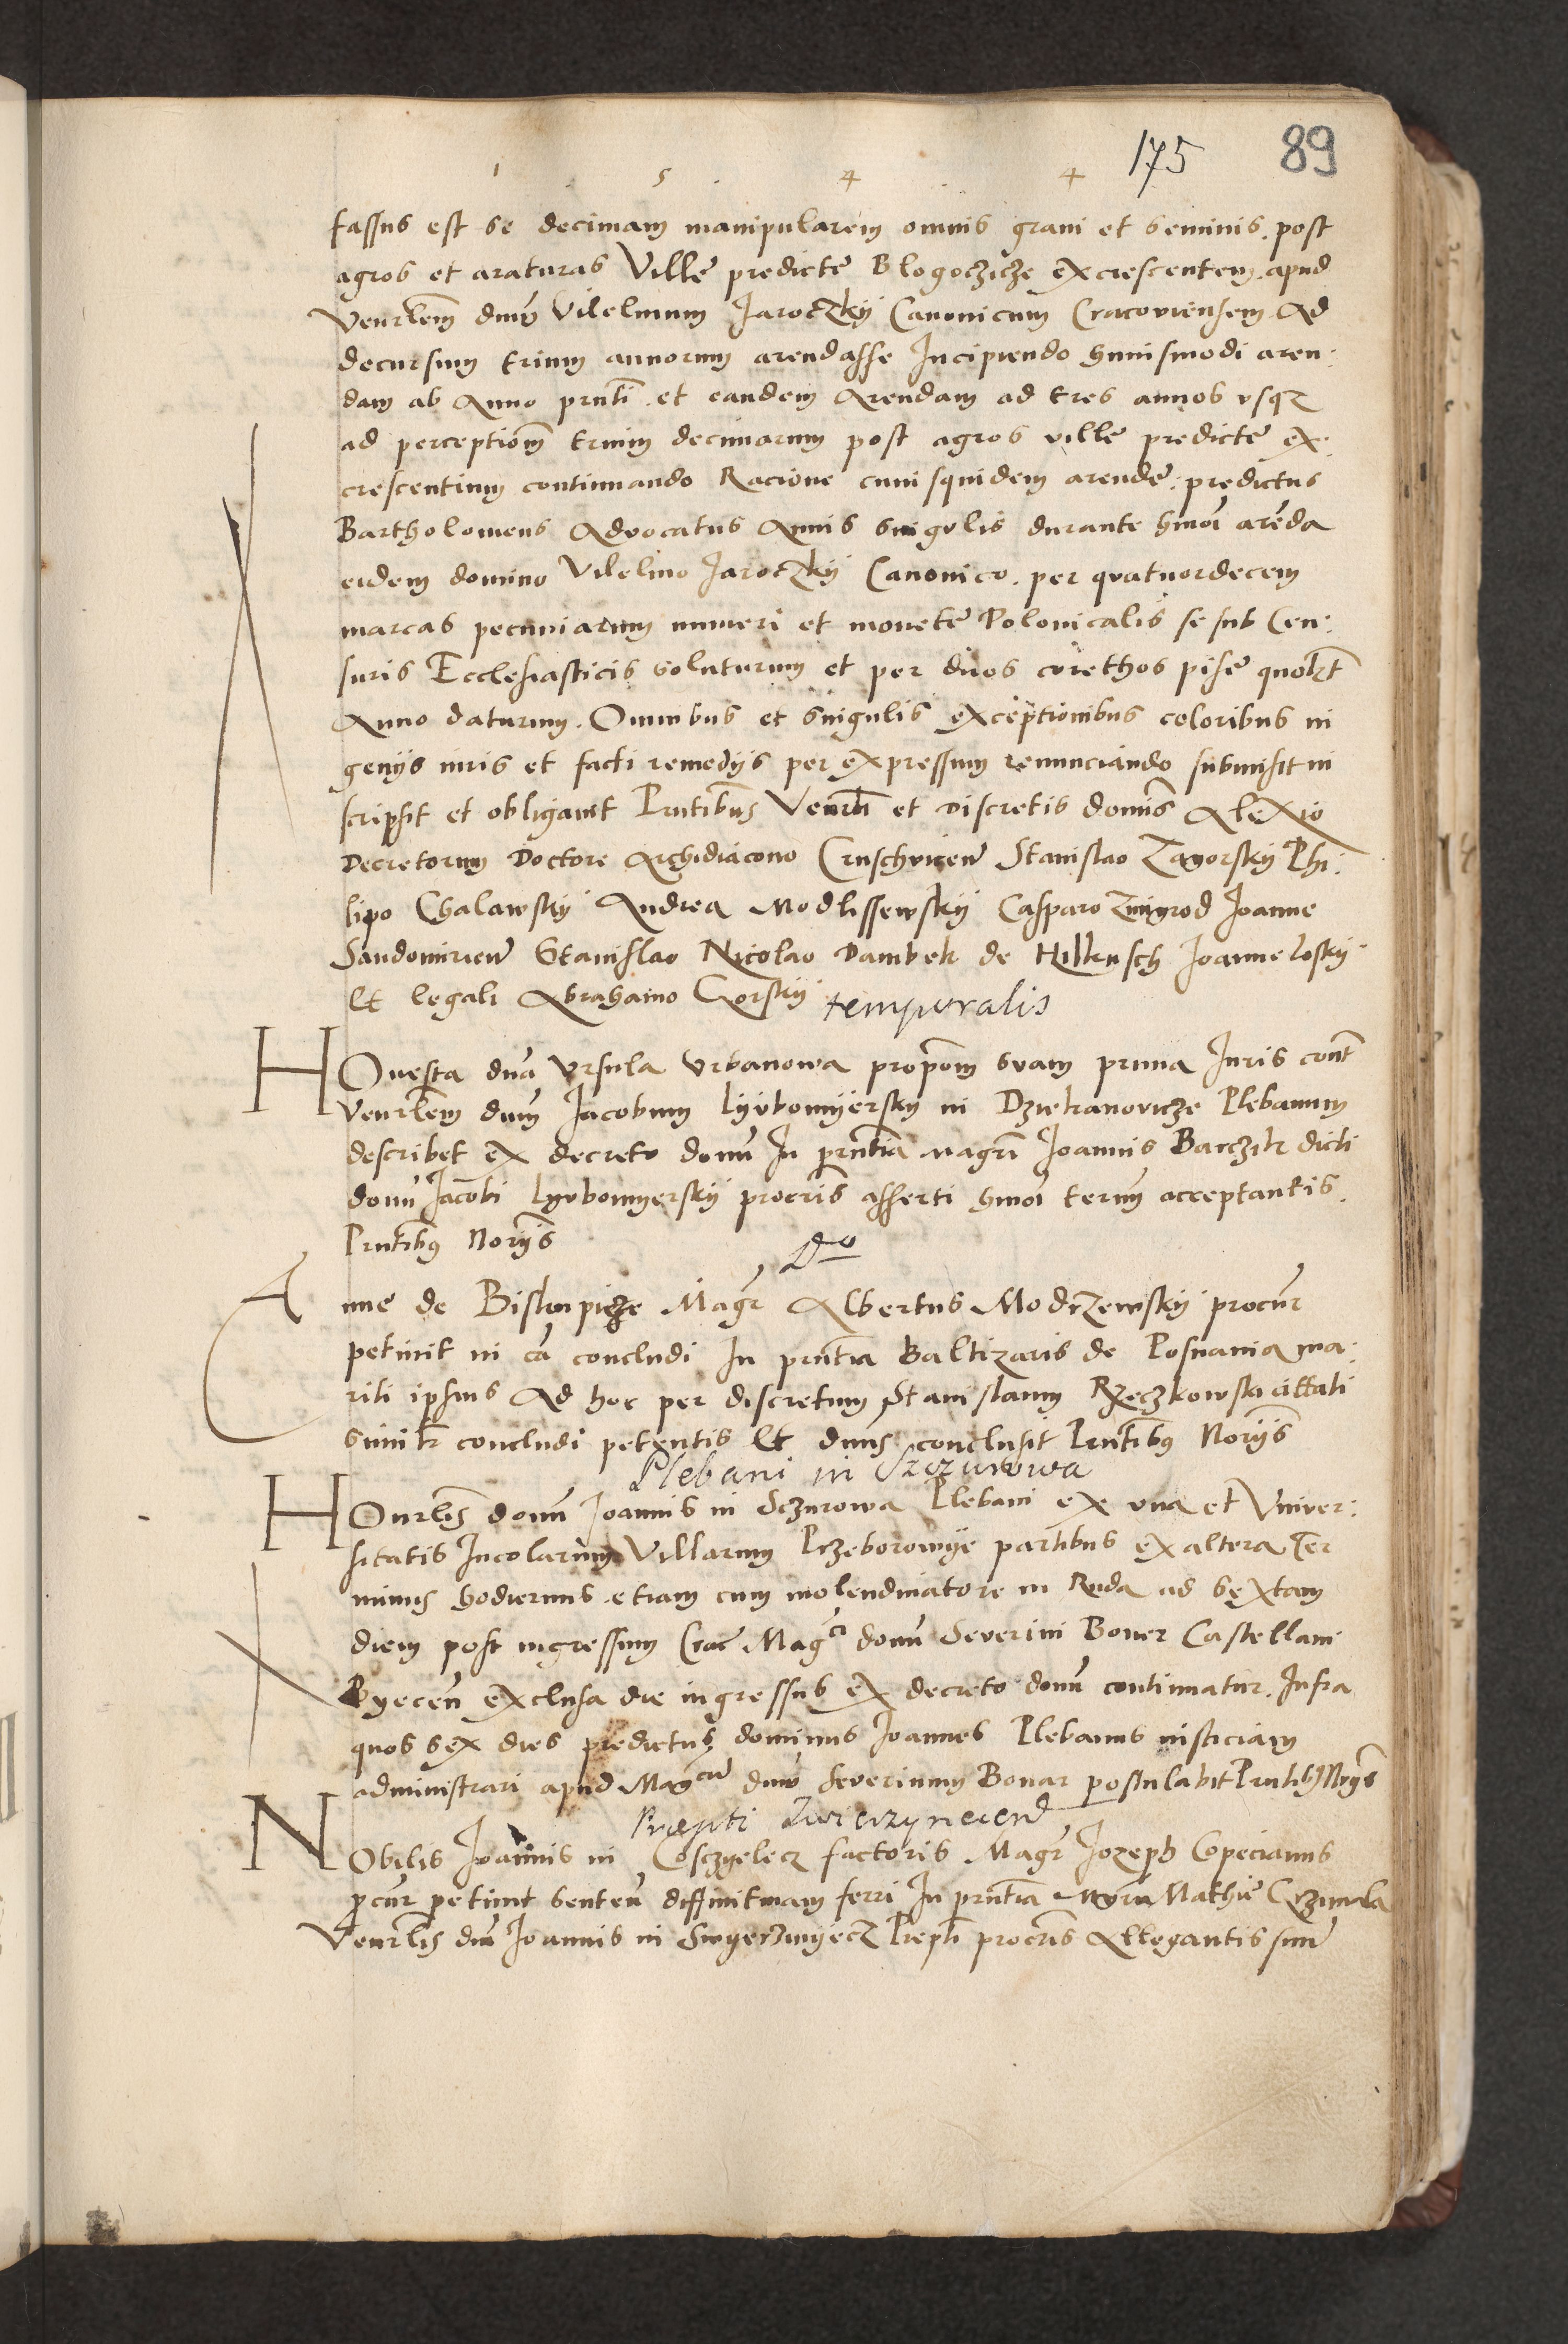 1 5 4 4 175 89
fassus est se decimam manipularem omnis grani et seminis. post
agros et araturas Ville predicte Blogoczicze excrescentem. apud
Venrlem dnum Vilelmum Jaroczkÿ Canonicum Cracoviensem. Ad
decursum trium annorum arendasse Incipiendo huiusmodi aren:
dam ab Anno prnti. et eandem Arendam ad tres annos vsqz
ad perceptiom trium decimarum post agros ville predicte ex:
crescentium continuando Racione cuiusquidem arende: predictus
Bartholomeus Advocatus Annis singulis durante hmoi arenda
eidem domino Vilelmo Jaroczkÿ Canonico. per qvatuordecem
marcas pecuniarum numeri et monete Polonicalis se sub Cen:
suris Ecclesiasticis soluturum et per duos corethos pise quolzt
Anno daturum. Omnibus et singulis exceptionibus coloribus in
genÿs iuris et facti remedÿs per expressum renunciando submisit in
scripsit et obligauit Prntibus Venrli et discretis domis Alexio
Decretorum Doctore Archidiacono Cruschvicen Stanislao Zagorskÿ Phi:
lipo Chalawskÿ Andrea Modlissewskÿ Casparo Zmigrod Joanne
Sandomirien Stanislao Nicolao Dambek de Hilkusch Joanne Loskÿ
Et legali Abrahamo Gorskÿ temporalis
HOnesta dna Vrsula Vrbanowa propom suam prima Juris cont
Venrlem dnum Jacobum Lÿvbomÿerskÿ in Dziekanovicze Plebanum
describet ex decreto domi In prntia magri Joannis Barczik dicti
domi Jacobi Lyvbomyerskÿ procris asserti hmoi termi acceptantis.
Prntibus Norÿs
Do
Anne de Biskupicze Magr Albertus Modrzewskÿ procur
petiuit in ca concludi In prntia Baltizaris de Posnania ma:
riti ipsius Ad hoc per discretum Stanislaum Rzeczkowski cittati
similr concludi petentis Et dnus conclusit Prntibus Norÿs
Plebani in Sczurowa
HOnrlis domi Joannis in Sczurowa Plebani ex una et Vniver:
sitatis Incolarum Villarum Przeborowÿe partibus ex altera Ter
minus hodiernus. etiam cum molendinatore in Ruda ad sextam
diem post ingressum Crac Magci domi Severini Boner Castellani
Byecen exclusa die ingressus ex decreto domi continuatur. Infra
quos sex dies predictus dominus Joannes Plebanus iusticiam
administrari apud Magcu dnum Severinum Bonar postulabit Prntibus Norÿs
Praepti Zwierzynecen
NObilis Joannis in Cosczyelecz factoris Magr Jozeph Copecianus
procur petiuit senten diffinitiuam ferri In prntia Mathie Crzimola
Venrlis dni Joannis in Swyerzinÿecz Prepti procris Allegantis